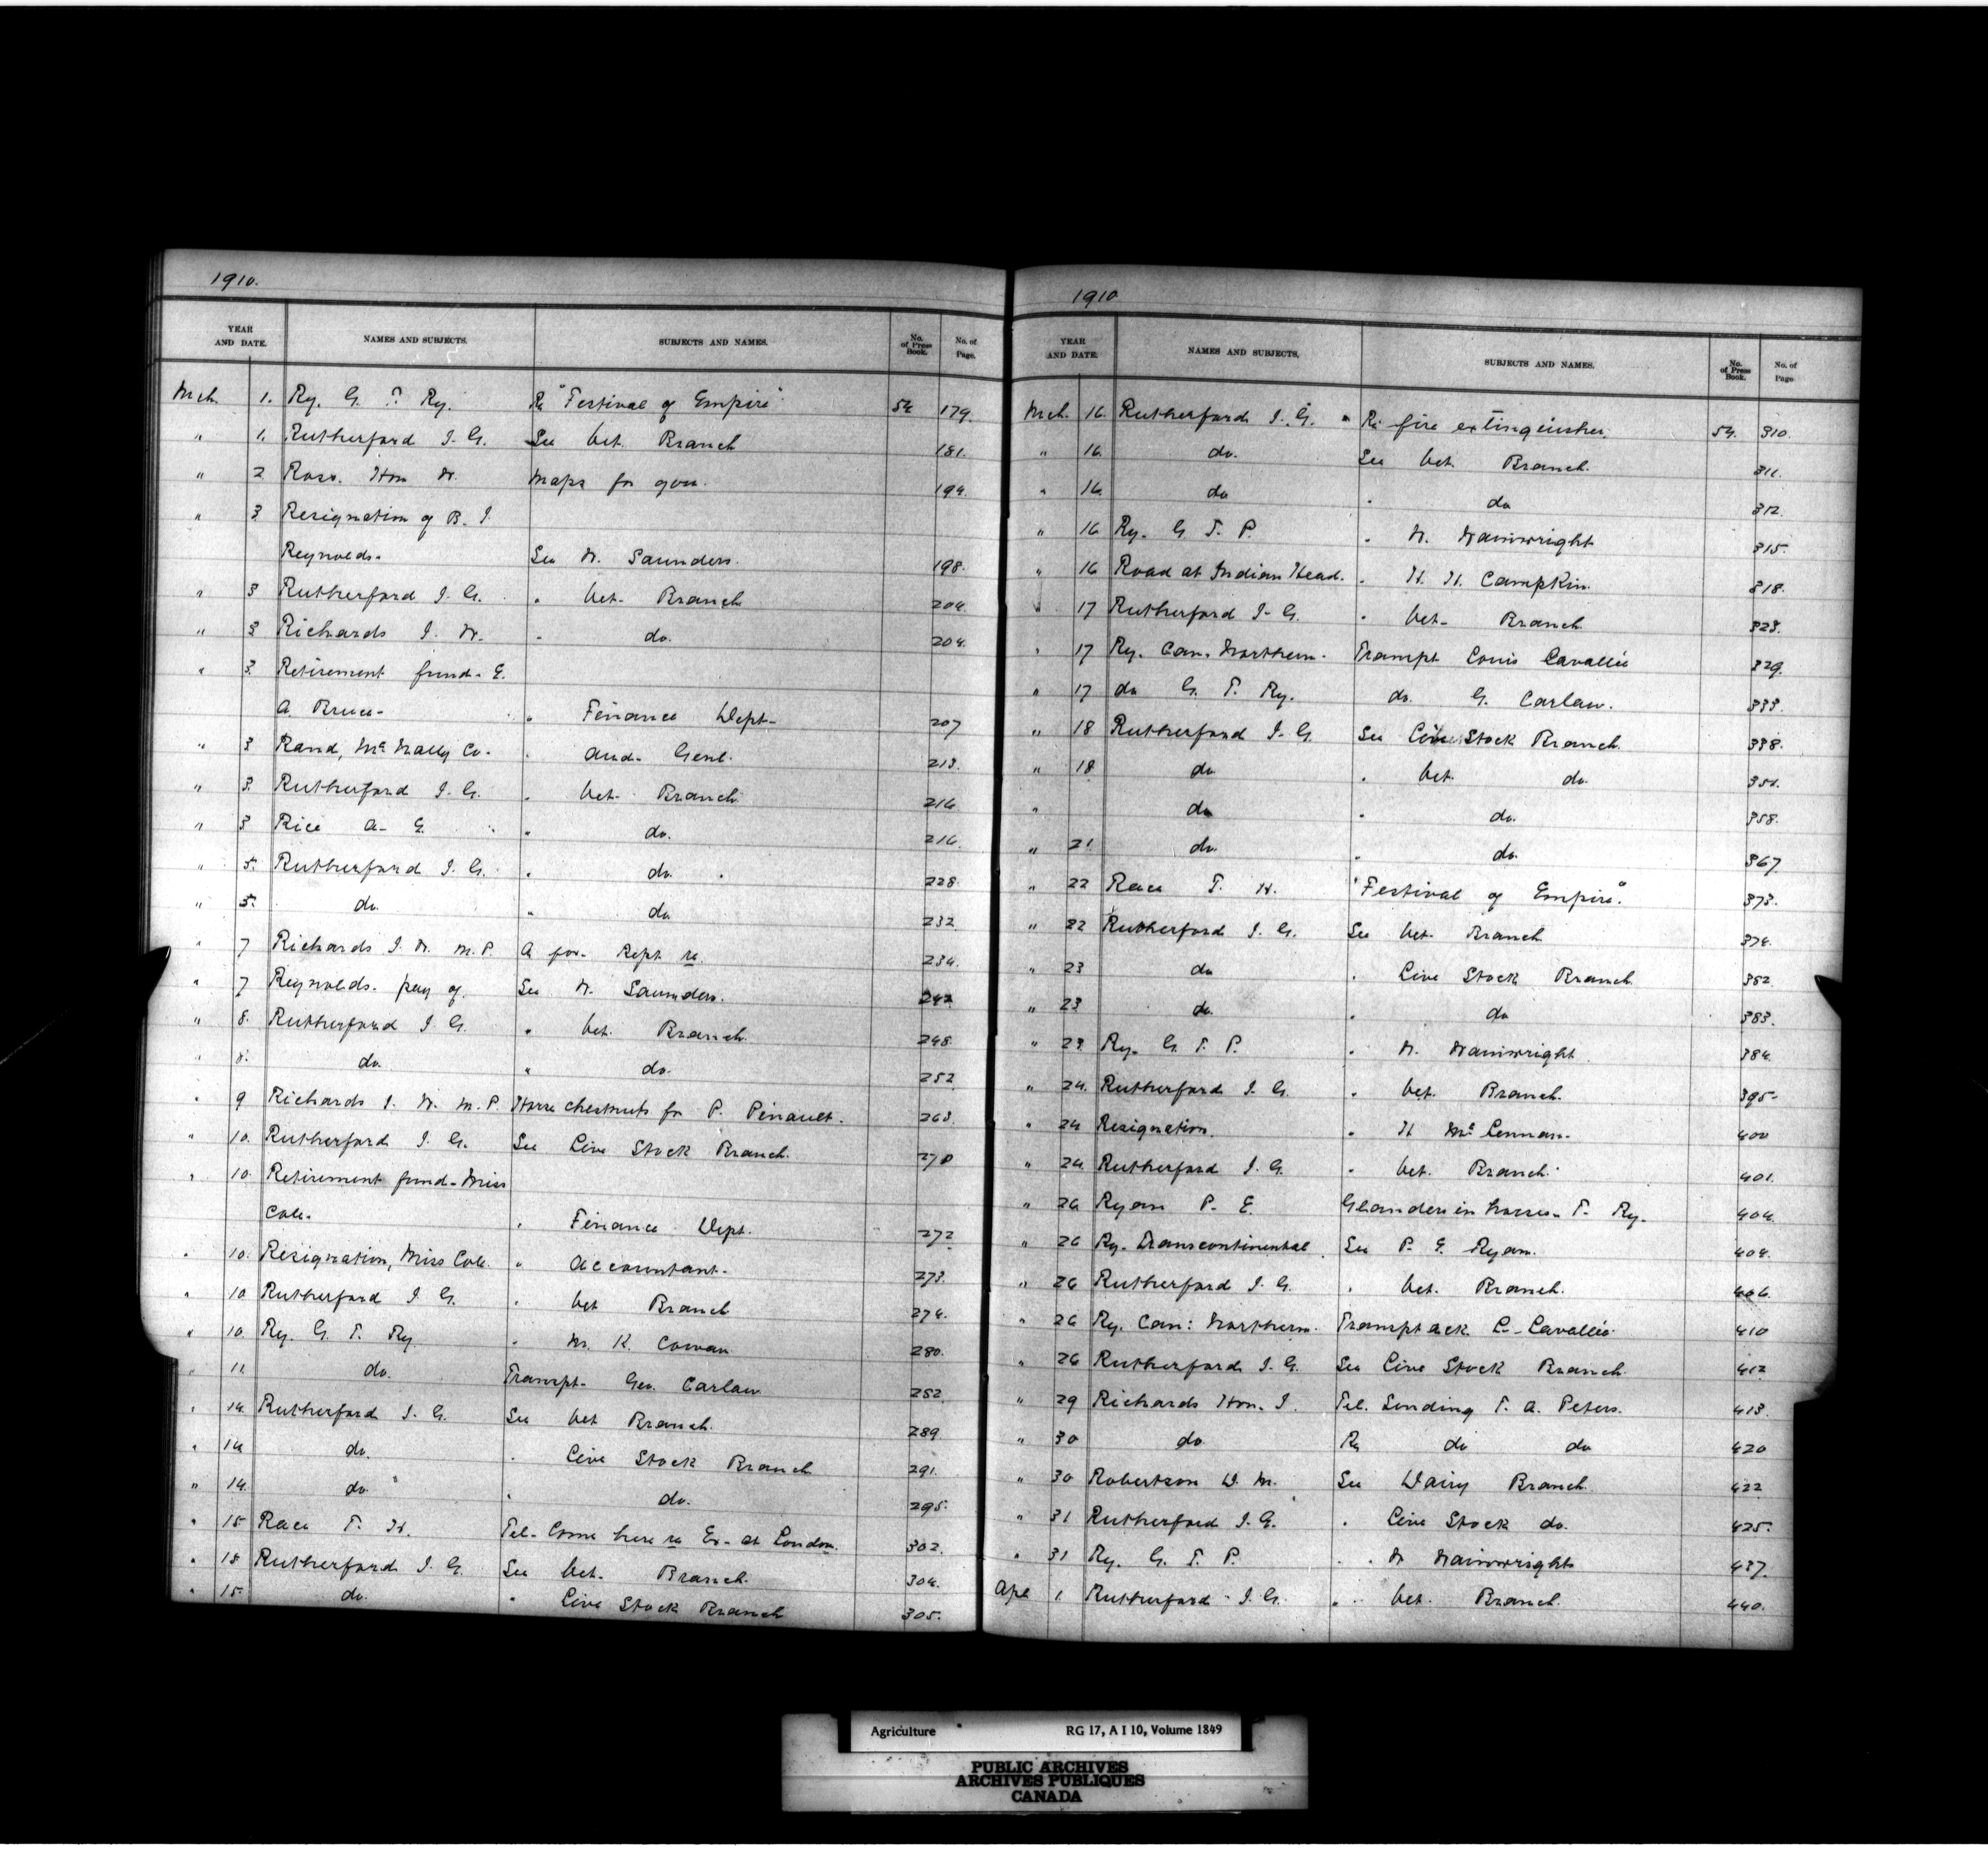 1910.
YEAR AND DATE. NAMES AND SUBJECTS. SUBJECTS AND NAMES. No. of Press Book. No. of Page.
Mch. 1. Ry. G. T. Ry. Re "Festival of Empire" 54 179.
" 1. Rutherford J. G. See Vet. Branch 181.
" 2 Ross. Hon W. Maps for 194.
" 3 Resignation of B. J.
Reynolds. See W. Saunders. 198.
" 3 Rutherford J. G. " Vet. Branch 204.
" 3 Richards J. W. " do. 204.
" 3. Retirement fund- E.
A. Bruce- " Finance Dept- 207
" 3 Rand, McNally Co. " Aud. Genl. 213.
" 3. Rutherford J. G. " Vet. Branch 216
" 3 Rice A. E. " do. 216.
" 5. Rutherford J. G. " do. 228.
" 5. do. " do. 232
" 7 Richards J. W. M.P. A for. Rept re. 234.
" 7 Reynolds. pay of See W. Saunders. 242
" 8. Rutherford J. G. " Vet. Branch. 248
" 8. do. " do. 252
" 9 Richards J. W. M.P. Horse chestnuts for P. Pinault. 263.
" 10. Rutherford J. G. See Live Stock Branch. 270
" 10. Retirement fund- Miss
Cole. " Finance Dept. 272
" 10. Resignation, Miss Cole. " Accountant. 273.
" 10 Rutherford J. G. " Vet Branch 274.
" 10. Ry. G. T. Ry " M. K. Cowan 280.
" 11. do. Transpt. Geo. Carlaw 282.
" 14. Rutherford J. G. See Vet Branch. 289
" 14 do. " Live Stock Branch 291.
" 14. do. " do. 295.
" 15 Race T. H. Tel- Come here re Ex- at London. 302.
" 15 Rutherford J. G. See Vet. Branch. 304.
" 15. do. " Live Stock Branch 305.
1910
YEAR AND DATE. NAMES AND SUBJECTS, SUBJECTS AND NAMES. No. of Press Book. No. of Page
Mch. 16. Rutherford J. G. " Re fire extinguisher. 54. 310.
" 16. do. See Vet. Branch. 311.
" 16. do " do 312.
" 16. Ry. G. T. P. " W. Wainwright 315.
" 16 Road at Indian Head. " H. H. Campkin. 318.
" 17 Rutherford J. G. " Vet- Branch. 323.
" 17 Ry. Can. Northern. Transpt Louis Cavallée 329.
" 17 do G. T. Ry. do. G. Carlaw. 333.
" 18 Rutherford J. G. See Live Stock Branch. 338.
" 18 do " Vet. do. 351.
" do " do. 358.
" 21 do. " do. 367
" 22 Race T. H. "Festival of Empire". 373.
" 22 Rutherford J. G. See Vet. Branch. 374.
" 23 do " Live Stock Branch. 382
" 23 do. " do 383.
" 23 Ry. G. T. P. " W. Wainwright. 384.
" 24. Rutherford J. G. " Vet. Branch. 395.
" 24 Resignation. " H McLennan. 400
" 24 Rutherford J. G. " Vet. Branch. 401.
" 26 Ryan P. E. Glanders in horses. T. Ry. 404.
" 26 Ry. Transcontinental. See P. E. Ryan. 404.
" 26 Rutherford J. G. " Vet. Branch. 406.
" 26 Ry. Can: Northern. Transpt ack L. Cavallée 410
" 26 Rutherford J. G. See Live Stock Branch. 412
" 29 Richards Hon. J. Tel. Sending T. A. Peters. 413.
" 30 do. Re do do 420
" 30 Robertson D. M. See Dairy Branch. 422
" 31 Rutherford J. G. " Live Stock do. 425.
" 31 Ry. G. T. P. " W Wainwright 437.
Apl 1. Rutherford J. G. " Vet. Branch. 440.
Agriculture RG 17, A I 10, Volume 1849
PUBLIC ARCHIVES
ARCHIVES PUBLIQUES
CANADA